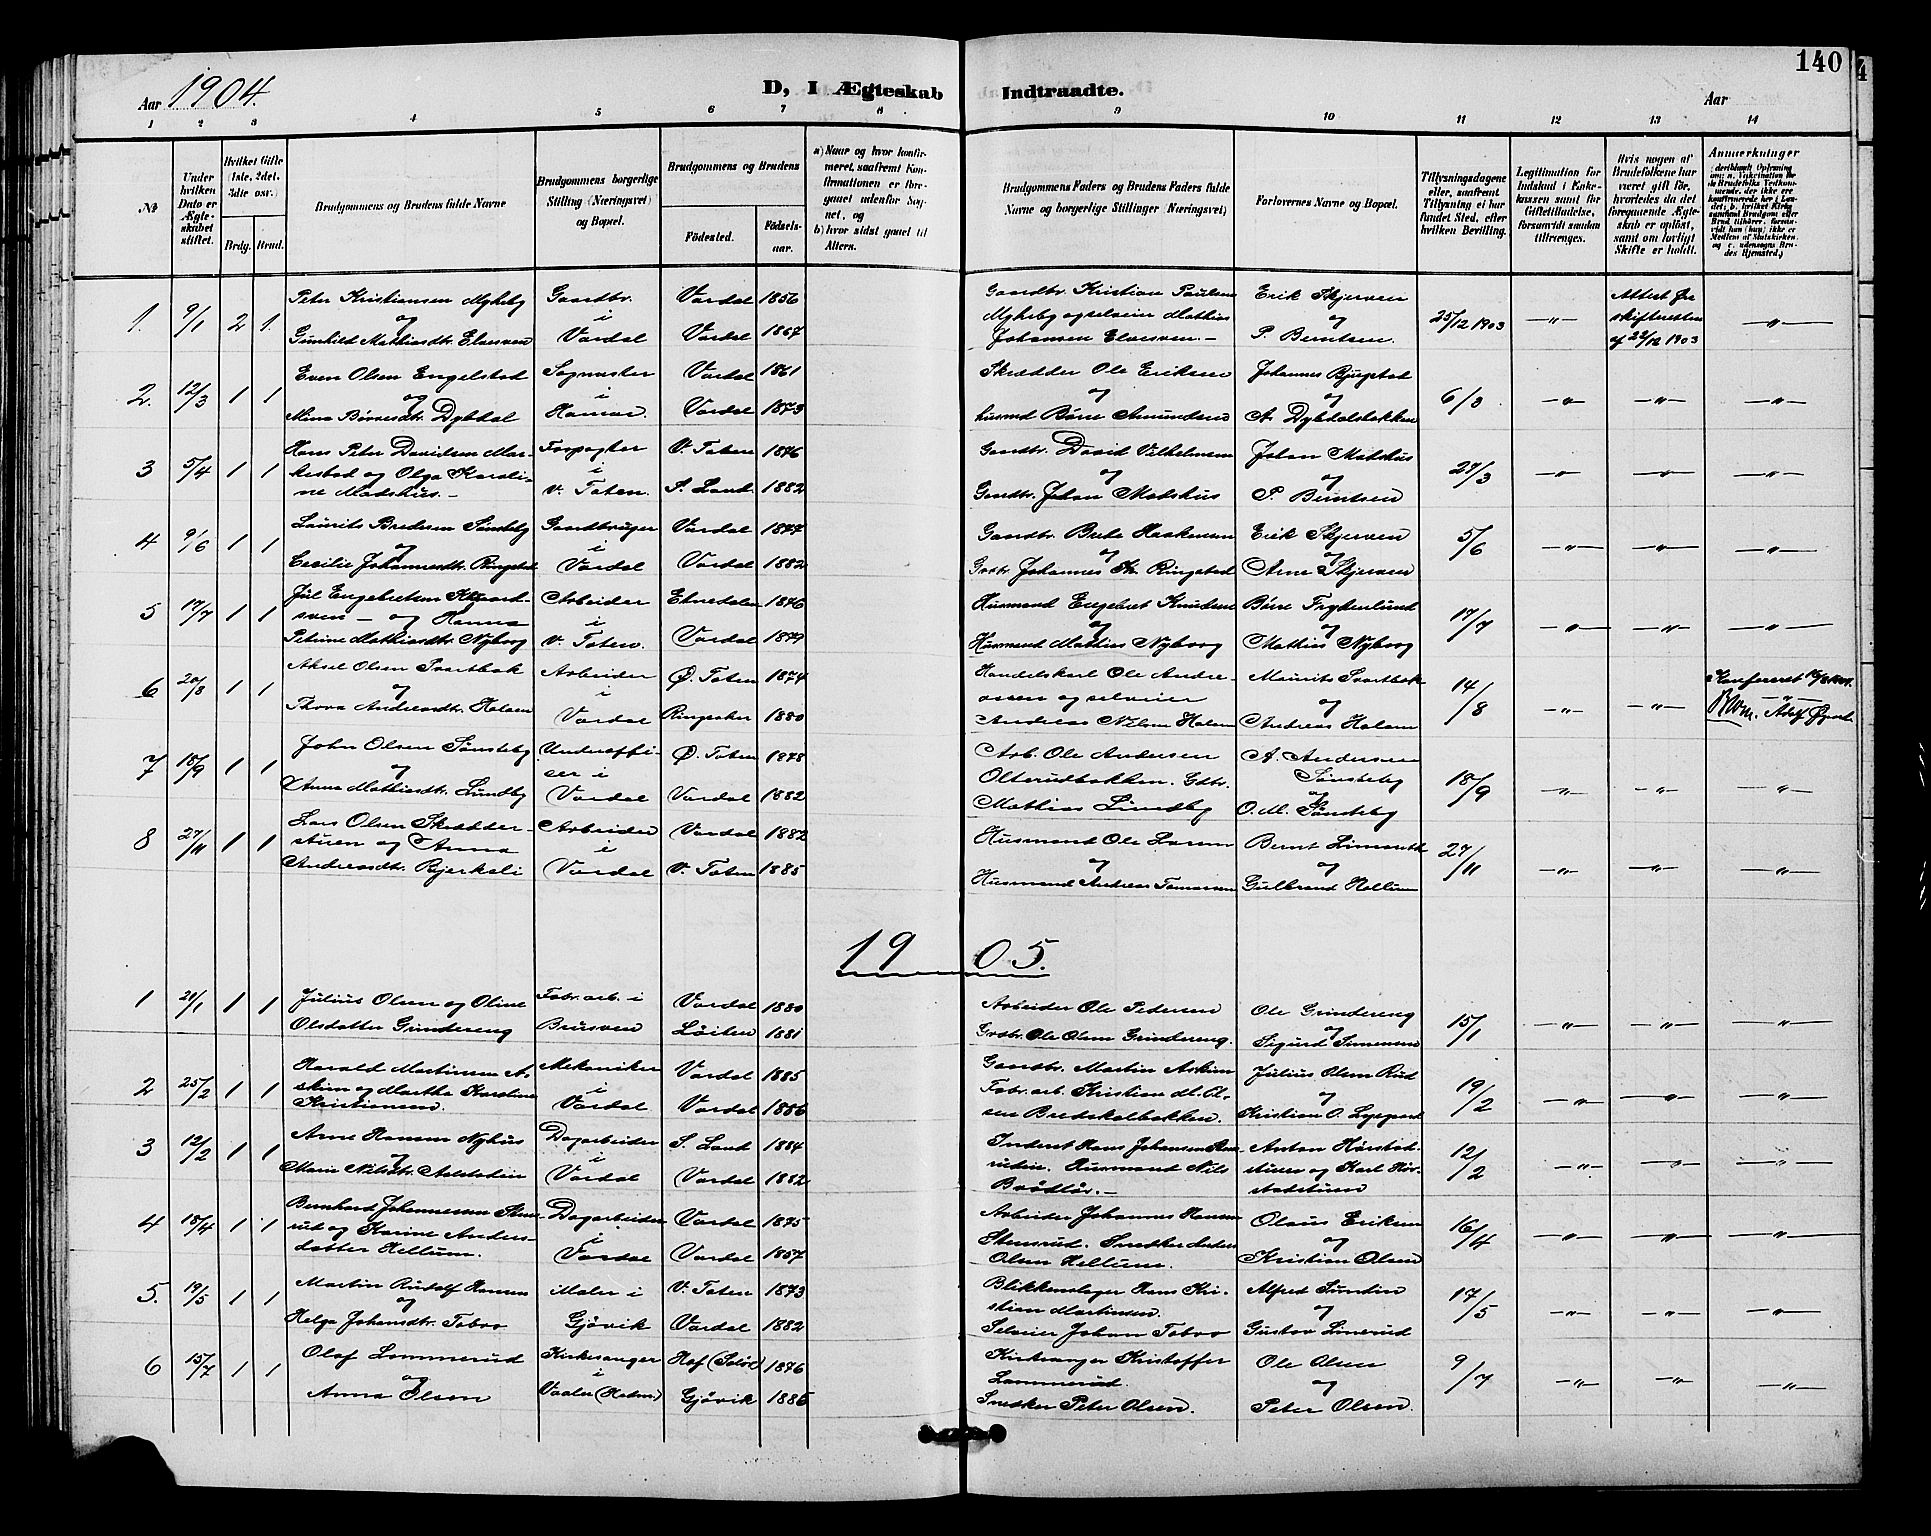 140
Aar 1904.
D, I Ægteskab Indtraadte.
Aar
1 2 3 4 5 6 7 8 9 10 11 12 13 14
No
Under hvilken Dato er Ægteskabet stiftet.
Hvilket Gifte (1ste, 2det, 3die osv.)
Brdg. Brud.
Brudgommens og Brudens fulde Navne
Brudgommens borgerlige Stilling (Næringsvei) og Bopæl.
Brudgommens og Brudens
Fødested.
Fødselsaar.
a) Naar og hvor konfirmeret, saafremt Konfirmationen er foregaaet udenfor Sognet, og
b) hvor sidst gaaet til Alters.
Brudgommens Faders og Brudens Faders fulde Navne og borgerlige Stillinger (Næringsvei)
Forlovernes Navne og Bopæl.
Tillysningsdagene eller, saafremt Tillysning ei har fundet Sted, efter hvilken Bevilling.
Legitimation for Indskud i Enkekassen samt for Giftetilladelse, forsaavidt saadan tiltrænges.
Hvis nogen af Brudefolkene har været gift før, hvorledes da det foregaaende Ægteskab er opløst, samt om lovligt Skifte er holdt.
Anmærkninger
1. 9/1 2 1. Peter Kristiansen Myheby og Gunhild Mathiasdtr. Elvesven
Gaardbr. i Vardal
Vardal 1856
Vardal 1867
Gaardbr. Kristian Paulsen Myheby og selveier Mathias Johansen Elvesven. —
Erik Skjerven og P. Berntsen.
25/12 1903 —"—
Attest fra skifteretten af 22/12 1903 —"—
2. 12/3 1 1 Even Olsen Engelstad og Mina Børresdtr. Dybdal
Sagmester i Hamar.
Vardal 1861
Vardal 1873
Skrædder Ole Eriksen og husmd Børre Amundsen
Johannes Bjugstad og A. Dybdalsbakken
6/3 —"— —"— —"—
3 5/4 1 1 Hans Peter Davidsen Markestad og Olga Karoline Madshus. —
Forpagter i V. Toten.
V. Toten 1876
S. Land 1882
Gaardbr. David Vilhelmsen og Gaardbr. Johan Madshus
Johan Madshus og P. Berntsen
27/3 —"— —"— —"—
4 9/6 1 1 Laurits Bredesen Sønsteby og Cecilie Johannesdtr. Ringstad
Gaardbruger i Vardal
Vardal 1877
Vardal 1882
Gaardbr. Brede Haakensen og Grdbr. Johannes Kr. Ringstad
Erik Skjerven og Arne Skjerven
5/6 —"— —"— —"—
5 17/7 1 1 Jul Engebretsen og Hanna Petrine Mathiasdtr. Nyborg
Arbeider i V. Toten.
Etnedalen 1876
Vardal 1879
Husmand Engebret Knudsen og Husmand Mathias Nyborg
Børre Frydenlund og Mathias Nyborg
17/7 —"— —"— —"—
6 20/8 1 1 Aksel Olsen Svartbak og Thora Andreasdtr. Holsen
Arbeider i Vardal
Ø. Toten 1874
Ringsaker 1880
Handelskarl Ole Andreassen og selveier Andreas Holsen
Maurits Svartbak og Andreas Holsen
14/8 —"— —"—
7 18/9 1 1 John Olsen Sønsteby og Anna Mathiasdtr. Lundby
Underoffiser i Vardal
Ø. Toten 1878
Vardal 1882
Arb. Ole Andersen Olterudbakken. Gdbr. Mathias Lundby
A. Andersen Sønsteby og O. M. Sønsteby
18/9 —"— —"— —"—
8 27/11 1 1 Lars Olsen Skrædderstuen og Anna Andreasdtr. Bjerkeli
Arbeider i Vardal
Vardal 1882
V. Toten 1885
Husmand Ole Larsen og Husmand Andreas
Bernt og Gulbrand Hellum
27/11 —"— —"— —"—
1905.
1 21/1 1 1 Julius Olsen og Oline Olsdatter Grindereng
Fabr. arb. i Brusven
Vardal 1880
Løiten 1881
Arbeider Ole Pedersen
Grdbr. Ole Olsen Grindereng.
Ole Grindereng og Sigurd Simensen
15/1 —"— —"— —"—
2 25/2 1 1 Harald Martinsen Askim og Martha Karoline Kristiansen.
Mekaniker i Vardal
Vardal 1885
Vardal 1886
Gaardbr. Martin Askim
Fabr. arb. Kristian M. Olsen Bredskalbakken.
Julius Olsen Rud og Kristian O. Lysgaard
19/2 —"— —"— —"—
3 12/2 1 1 Arne Hansen Nyhus og Marie Nilsdtr.
Dagarbeider i Vardal
S. Land 1884
Vardal 1882
Inderst Hans Johansen Husmand Nils Brødløs. —
Anton Hørstadstuen og Karl Hørstadstuen
12/2 —"— —"— —"—
4 18/4 1 1 Bernhard Johannessen Stensrud og Karine Andersdatter Hellum.
Dagarbeider i Vardal
Vardal 1875
Vardal 1857
Arbeider Johannes Hansen Stensrud. Snedker Anders Olsen Hellum.
Olaus Eriksen og Kristian Olsen
16/4 —"— —"— —"—
5. 19/5 1 1 Martin Rudolf Hansen og Helga Johansdtr. Tobro
Maler i Gjøvik
V. Toten 1873
Vardal 1882
Blikkenslager Hans Kristian Martinsen.
Selveier Johan Tobro
Alfred Sundin og Gustav Linerud
17/5 —"— —"— —"—
6 15/7 1 1 Olaf Lommerud og Anna Olsen
Kirkesanger i Vaaler (Hedm.)
Hof (Solør) 1876
Gjøvik 1886
Kirkesanger Kristoffer Lommerud.
Snedker Peter Olsen.
Ole Olsen og Peter Olsen.
9/7 —"— —"— —"—